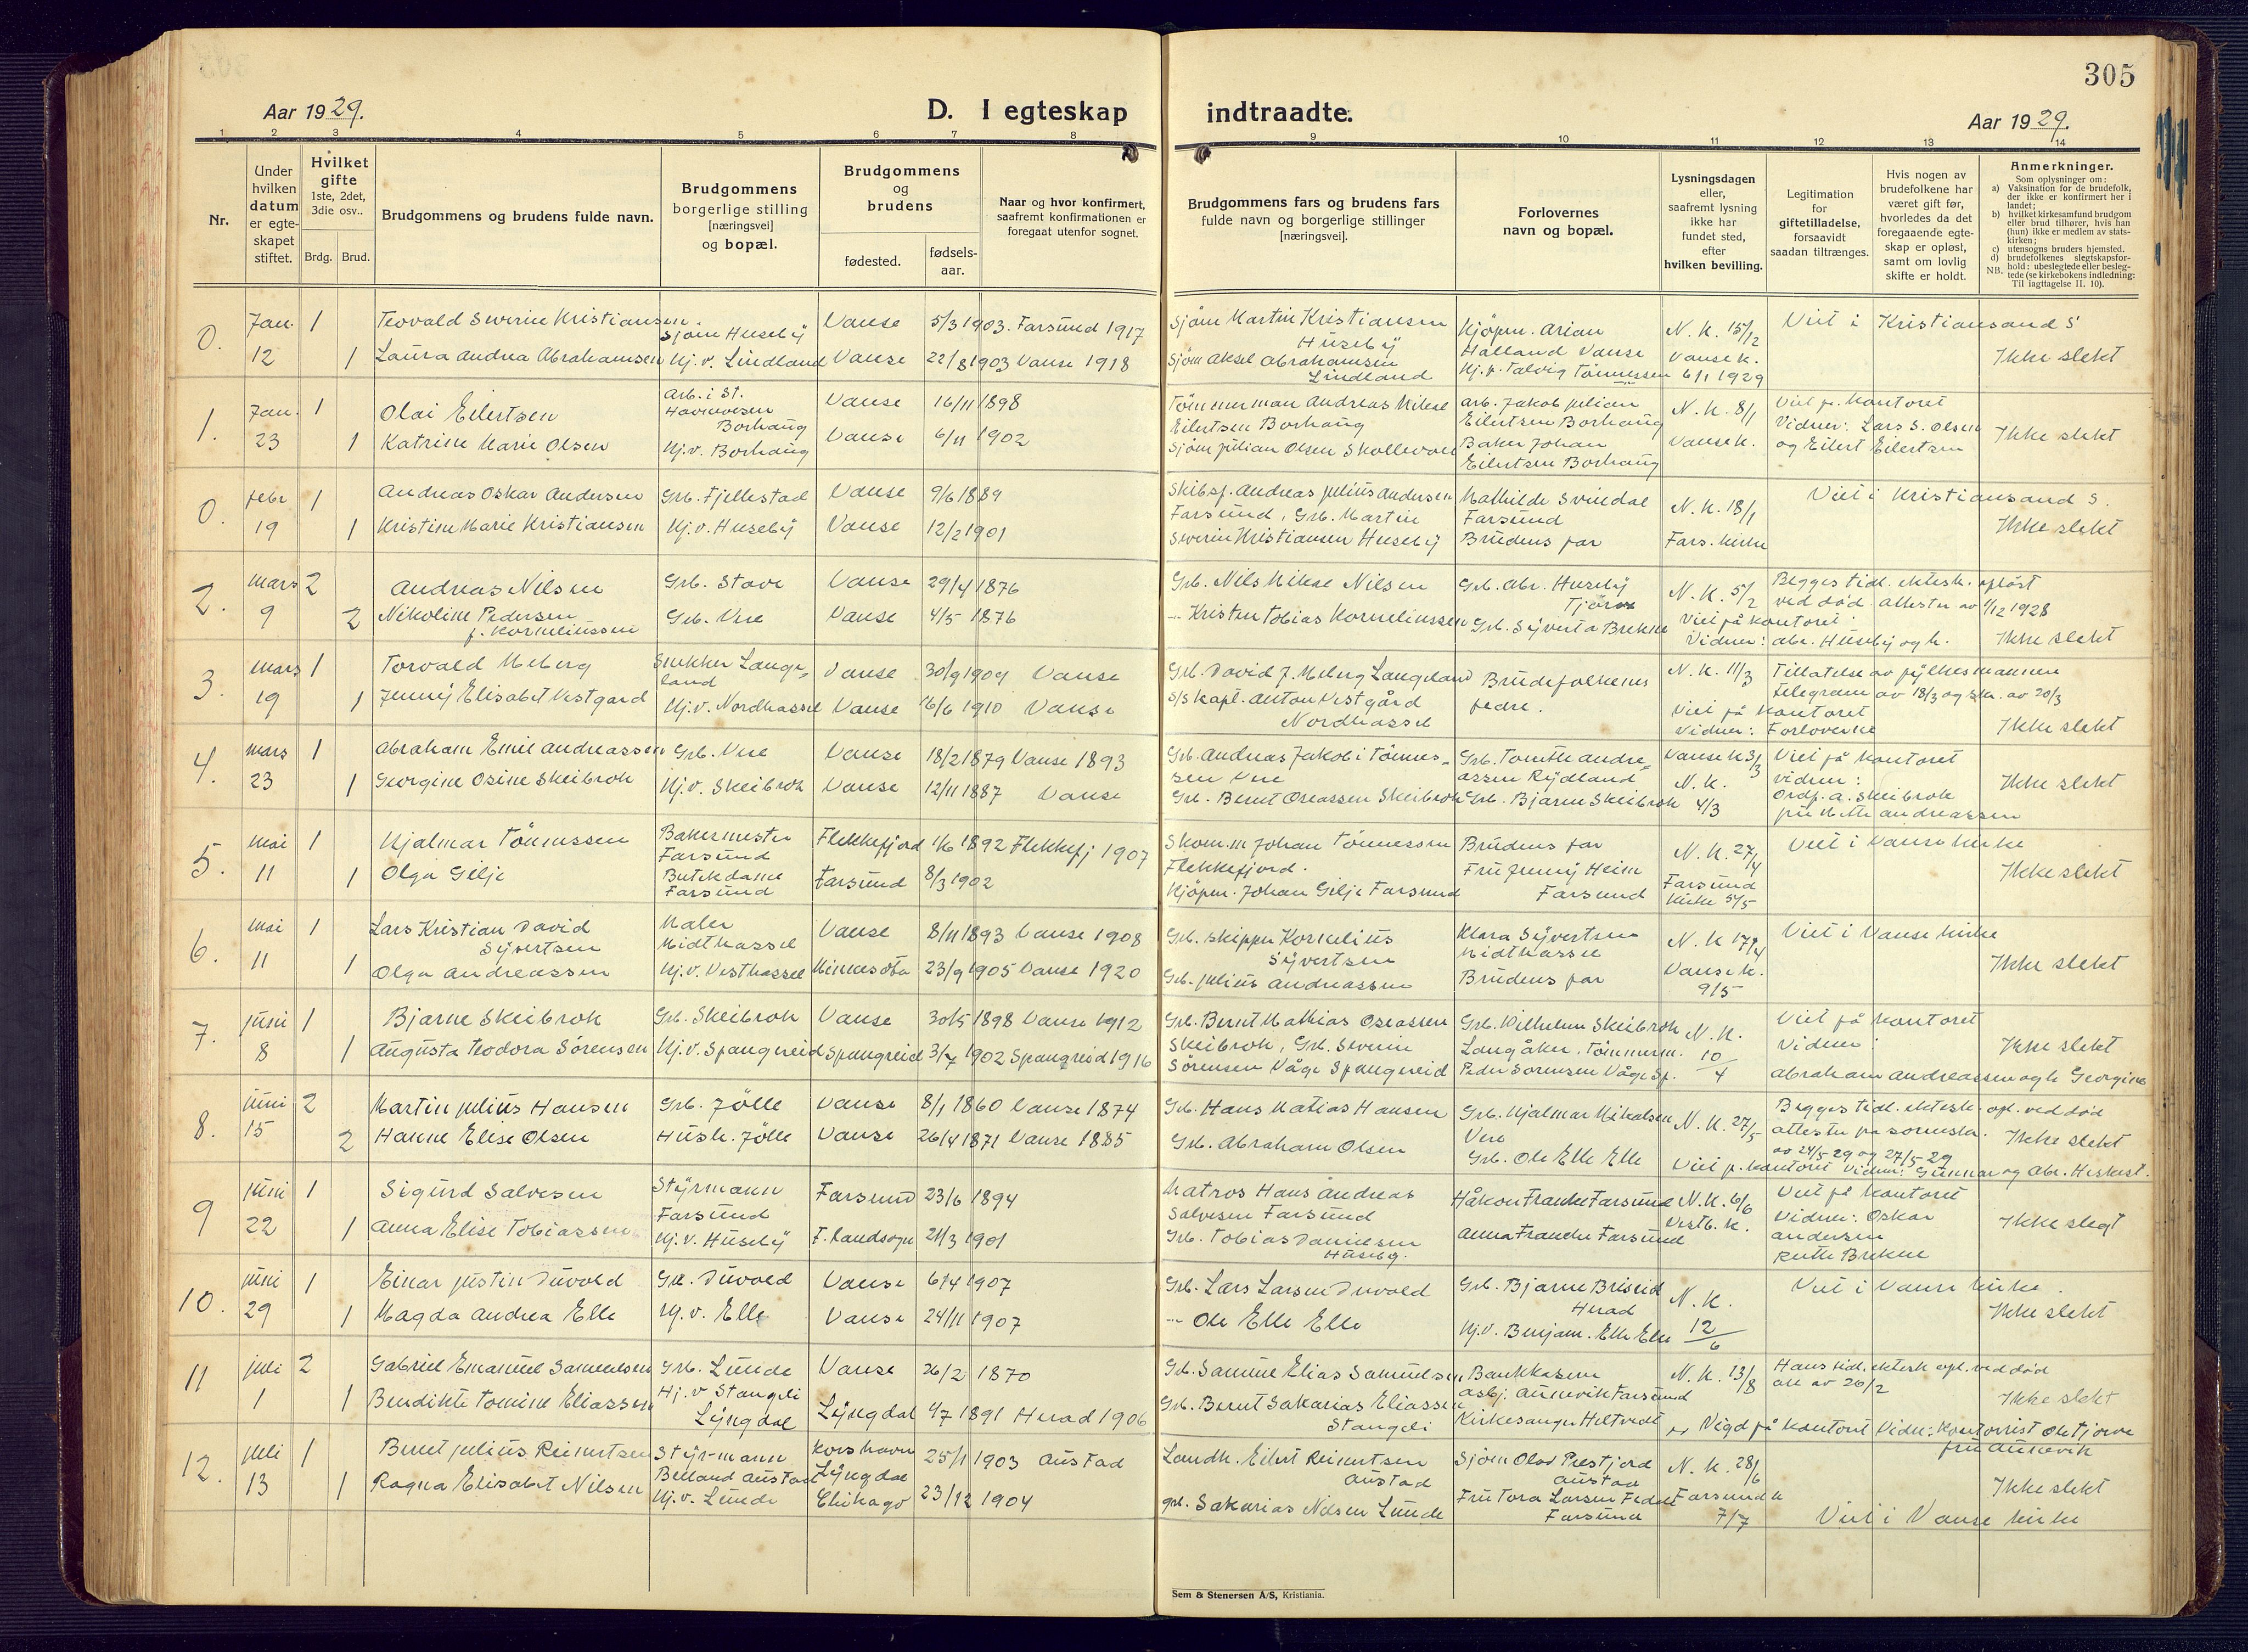 305
Aar 1929.
D. I egteskap indtraadte.
Aar 1929.
1 2 3 4 5 6 7 8 9 10 11 12 13 14
Nr.
Under hvilken datum er egte- skapet stiftet.
Hvilket gifte 1ste, 2det, 3die osv..
Brdg. Brud.
Brudgommens og brudens fulde navn.
Brudgommens borgerlige stilling [næringsvei] og bopæl.
Brudgommens og brudens
fødested.
fødsels- aar.
Naar og hvor konfirmert, saafremt konfirmationen er foregaat utenfor sognet.
Brudgommens fars og brudens fars fulde navn og borgerlige stillinger [næringsvei].
Forlovernes navn og bopæl.
Lysningsdagen eller, saafremt lysning ikke har fundet sted, efter hvilken bevilling.
Legitimation for giftetilladelse, forsaavidt saadan tiltrænges.
Hvis nogen av brudefolkene har været gift før, hvorledes da det foregaaende egte- skap er opløst, samt om lovlig skifte er holdt.
Anmerkninger.
Som oplysninger om:
a) Vaksination for de brudefolk, der ikke er konfirmert her i landet;
b) hvilket kirkesamfund brudgom eller brud tilhører, hvis han (hun) ikke er medlem av stats- kirken;
c) utensogns bruders hjemsted.
d) brudefolkenes slegtskapsfor- hold: ubeslegtede eller besleg- tede (se kirkebokens indledning:
NB. Til iagttagelse II. 10).
0. Jan. 12 1 Teovald Severin Kristiansen Sjøm Husebÿ Vanse 5/3 1903. Farsund 1917
1 Laura Andrea Abrahamsen Hj. v. Lindland Vanse 22/8 1903 Vanse 1918
Sjøm Martin Kristiansen Husebÿ
Sjøm Aksel Abrahamsen Lindland
Kjøpm. Arian Halland Vanse
N. K. 15/12 Vanse k. 6/1 1929
Viet i Kristiansand S
Ikke slekt
1. Jan. 23 1 Olai Eilertsen Arb. i St. Havnvesen Borhaug Vanse 16/11 1898
1 Katrine Marie Olsen Hj. v. Borhaug Vanse 6/11 1902
Tömmerman Andreas Mikal Eilertsen Borhaug
Sjøm Julian Olsen Skollevoll
Arb. Jakob Julian Eilertsen Borhaug
Baker Johan Eilertsen Borhaug
N. K. 8/1 Vanse k.
Viet p. kontoret Vidner: Lars S. Olsen og Eilert Eilertsen
Ikke slekt
0. febr 19 1 Andreas Oskar Andersen Grb. Fjellestad Vanse 9/6 1889
1 Kristine Marie Kristiansen Hj. v. Husebÿ Vanse 12/2 1901
Skibsf. Andreas Julius Andersen Farsund, Grb. Martin Severin Kristiansen Husebÿ
Mathilde Svindal Farsund
Brudens far
N. K. 18/1 Fars. kirke
Viet i Kristiansand S.
Ikke slekt
2. mars 9 2 Andreas Nilsen Grb. Stave Vanse 29/4 1876
2 Nikoline Pedersen f. Korneliussen Grb. Vere Vanse 4/5 1876
Grb. Nils Mikal Nilsen
" Kristen Tobias Korneliussen
Grb. Abr. Husebÿ Tjörve
Grb. Sigvert a Brekne
N. K. 5/2
Begges tidl. ektesk. opløst ved död. Attester av 1/12 1928
Viet på kontoret
Vidner: Abr. Husebÿ og h.
Ikke slekt
3. mars 19 1 Torvald Meberg Snekker Lange- land Vanse 30/9 1909 Vanse
1 Jenny Elisabet Vestgard Hj. v. Nordhassel Vanse 16/6 1910 Vanse
Grb. David J. Meberg Langeland
S/S Kapt. Anton Vestgård Nordhassel
Brudefolkenes fedre.
N. K. 11/3
Tillatelse av fylkesmannen telegram av 18/3 og skr. av 20/3
Viet på kontoret
Vidner: Forloverne
Ikke slekt
4. mars 23 1 Abraham Emil Andreassen Grb. Vere Vanse 18/2 1879 Vanse 1893
1 Georgine Osine Skeibrok Hj. v. Skeibrok Vanse 12/11 1887 Vanse
Grb. Andreas Jakobi Tönnes- sen Vere
Grb. Bernt Oseassen Skeibrok
Grb. Tomte Andre- assen Rÿdland
Grb. Bjarne Skeibrok
Vanse k 3/3 N. K. 4/3
Viet på kontoret vidner: Ordf. A. Skeibrok fru Mette Andreassen
Ikke slekt
5. mai 11 1 Hjalmar Tönnessen Bakermester Farsund Flekkefjord 1/6 1892 Flekkefj 1907
1 Olga Gilje Butikdame Farsund Farsund 8/3 1902
Skom. m Johan Tönnessen Flekkefjord.
Kjöpm. Johan Gilje Farsund
Brudens far
Fru Jenny Heim Farsund
N. K. 27/4 Farsund Kirke 5/5
Viet i Vanse kirke
Ikke slekt
6. mai 11 1 Lars Kristian David Sÿvertsen Maler Midthassel Vanse 8/11 1893 Vanse 1908
1 Olga Andreassen Hj. v. Vesthassel Minnesota 23/9 1905 Vanse 1920
Grb. skipper Kornelius Sÿvertsen
Grb. Julius Andreassen
Klara Sÿvertsen Midthassel
Brudens far
N. K 17/4 Vanse k. 9/5
Viet i Vanse kirke
Ikke slekt
7. juni 8 1 Bjarne Skeibrok Grb. Skeibrok Vanse 30/5 1898 Vanse 1912
1 Augusta Teodora Sörensen Hj. v. Spangereid Spangreid 3/7 1902 Spangreid 1916
Grb. Bernt Mathias Oseassen Skeibrok, Grb. Severin Sörensen Våge Spangereid
Grb. Vilhelm Skeibrok Langåker. Tömmerm. Peder Sörensen Våge Sp.
N. K. 10/4
Viet på kontoret Vidner: Abraham Andreassen og h Georgine
Ikke slekt
8. juni 15 2 Martin Julius Hansen Grb. Jölle Vanse 8/1 1860 Vanse 1874
2 Hanne Elise Olsen Hush. Jölle Vanse 26/4 1871 Vanse 1885
Grb. Hans Matias Hansen
Grb. Abraham Olsen
Grb. Hjalmar Mikalsen Vere
Grb. Ole Elle Elle
N. K. 27/5
Begges tidl. ektesk. opl. ved död attester fra sorensk. av 24/5 29 og 27/5 29
Viet p. kontoret Vidner: Gunnar og Abr. Heskest.
Ikke slekt
9 juni 22 1 Sigurd Salvesen Styrmann Farsund Farsund 23/6 1894
1 Anna Elise Tobiassen Hj. v. Husebÿ F. landsogn 21/3 1901
Matros Hans Andreas Salvesen Farsund
Grb. Tobias Danielsen Husebÿ.
Håkon Franke Farsund
Anna Franke Farsund
N. K. 6/6 Vestb. k.
Viet på kontoret Vidner: Oskar Andersen Ruth Brekne
Ikke slegt
10. juni 29 1 Einar Justin Duvold Grb. Duvold Vanse 6/4 1907
1 Magda Andrea Elle Hj. v. Elle Vanse 24/11 1907
Grb. Lars Larsen Duvold
" Ole Elle Elle
Grb. Bjarne Briseid Herad
Hj. v. Benjam. Elle Elle
N. K. 12/6
Viet i Vanse kirke.
Ikke slekt
11 juli 1 2 Gabriel Emanuel Samuelsen Grb. Lunde Vanse 26/2 1870
1 Bendikte Tomine Eliassen Hj. v Stangeli Lÿngdal Lÿngdal 4/7 1891 Herad 1906
Grb. Samuel Elias Samuelsen
Grb. Bernt Sakarias Eliassen Stangeli
Bankkasser Asbj. Aunevik Farsund
Kirkesanger Heltvedt
N. K. 13/8
Hans tidl. ektesk opl. ved död att av 26/2
Vigd på kontoret Vidn: Kontorist Ole Tjörve fru Aunevik
Ikke slekt
12. juli 13 1 Bernt Julius Reinertsen Styrmann Belland Austad Korshavn Lÿngdal 25/1 1903 Austad
1 Ragna Elisabet Nilsen Hj. v. Lunde Chikago 23/12 1904
Landh. Eilert Reinertsen Austad
grb. Sakarias Nilsen Lunde
Sjøm Olav Prestjord Austad
Fru Tora Larsen Farsund
N. K. 28/6 Farsund k 7/7
Viet i Vanse kirke
Ikke slekt
Sem & Stenersen A/S, Kristiania.